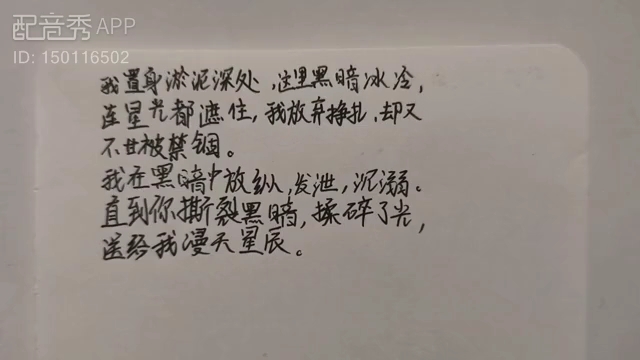 配音秀APP
ID: 150116502
我置身淤泥深处，这里黑暗冰冷，
连星光都遮住，我放弃挣扎，却又
不甘被禁锢。
我在黑暗中放纵，发泄，沉溺。
直到你撕裂黑暗，揉碎了光，
送给我漫天星辰。